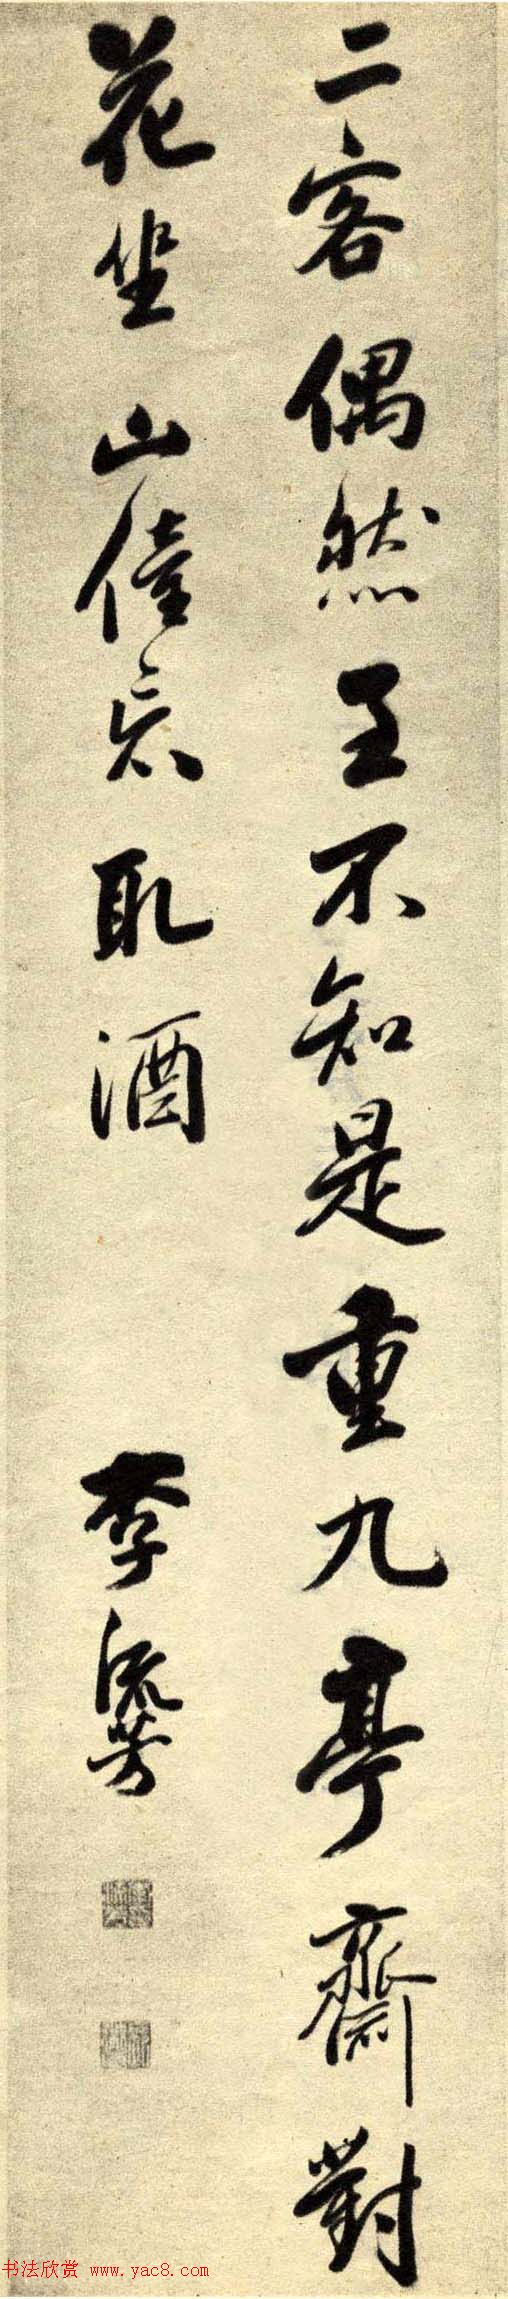 二客偶然至不知是重九亭齋對
花坐山僮忘取酒
李流芳
书法欣赏 www.yac8.com